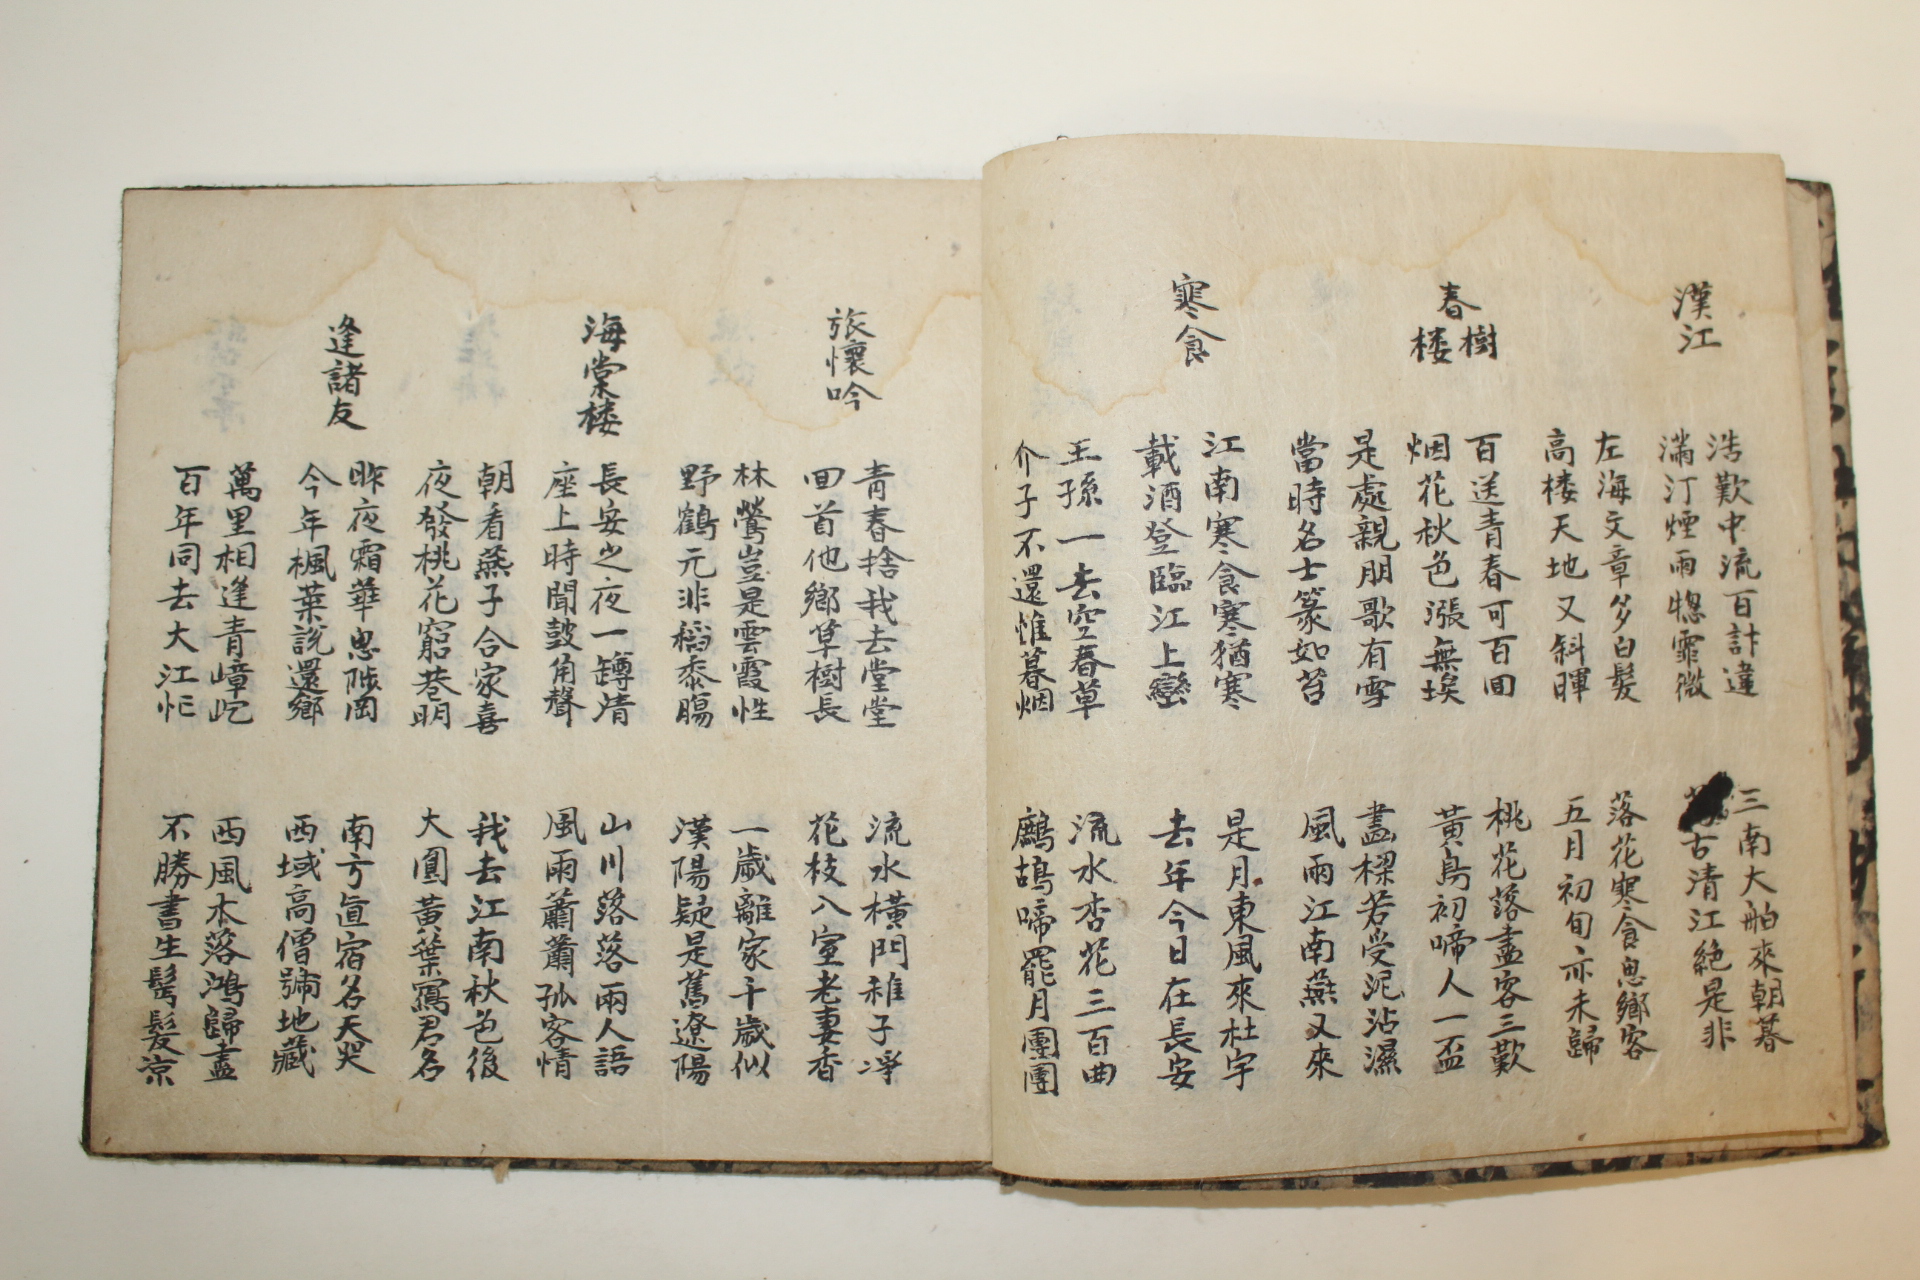 漢江
浩歎中流百計違
滿汀煙雨惚霏微
三南大舶來朝暮
古清江絶是非
左海文章多白髮
高楼天地又斜暉
落花寒食思鄉客
五月初旬亦未歸
春樹楼
百送青春可百回
烟花秋色漲無埃
桃花落盡客三歎
黃鳥初啼人一盃
是處親朋歌有雪
當時名士篆如苔
盡樑若受泥沾濕
風雨江南燕又來
寒食
江南寒食寒猶寒
載酒登臨江上巒
是月東風來杜宇
去年今日在長安
王孫一去空春草
介子不還惟暮烟
流水杏花三百曲
鷓鴣啼罷月團團
旅懷吟
青春捨我去堂堂
回首他鄉草樹長
流水橫門稚子凈
花枝入室老妻香
林鶯豈是雲霞性
野鶴元非稻黍腸
一歲離家千歲似
漢陽疑是舊遼陽
海棠楼
長安之夜一罇清
座上時聞鼓角聲
山川落落兩人語
風雨蕭蕭孤客情
朝看燕子合家喜
夜發桃花窮巷明
我去江南秋色後
大圓黃葉寫君名
逢諸友
昨夜霜華思陟岡
今年楓葉說還鄉
南方直宿名天哭
西域高僧號地藏
萬里相逢青嶂屹
百年同去大江忙
西風木落鴻歸盡
不勝書生鬂髮凉